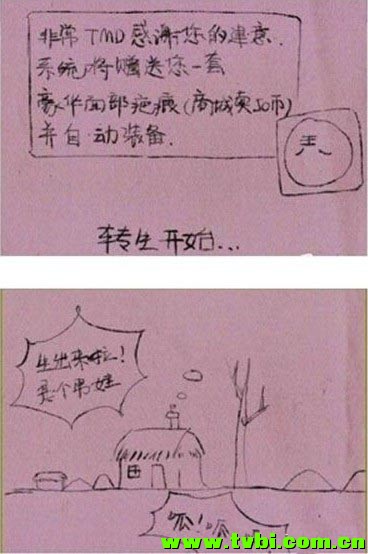 非常TMD感谢您的建意.
系统,将赠送您一套
豪华面部疤痕(商城卖50币)
并自动装备.
王八
转生开始...
生出来啦!
是个男娃
呱!呱
www.tvbi.com.cn